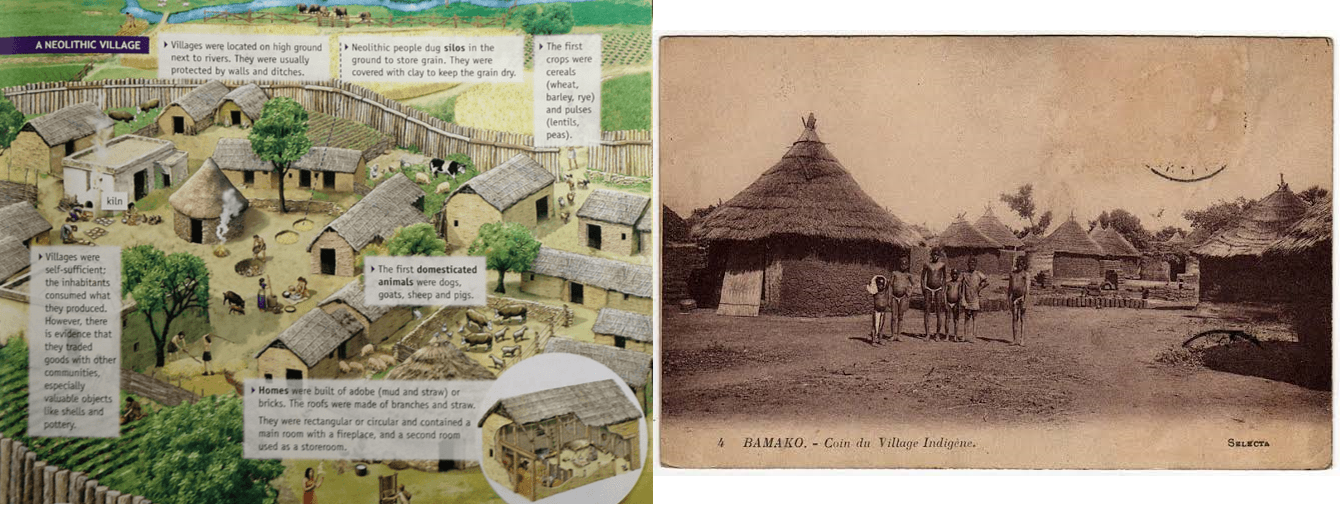 A NEOLITHIC VILLAGE
Villages were located on high ground
next to rivers. They were usually
protected by walls and ditches.
Neolithic people dug silos in the
ground to store grain. They were
covered with clay to keep the grain dry.
The first
crops were
cereals
(wheat,
barley, rye)
and pulses
(lentils,
peas).
kiln
Villages were
self-sufficient;
the inhabitants
consumed what
they produced.
However, there
is evidence that
they traded
goods with other
communities,
especially
valuable objects
like shells and
pottery.
The first domesticated
animals were dogs,
goats, sheep and pigs.
Homes were built of adobe (mud and straw) or
bricks. The roofs were made of branches and straw.
They were rectangular or circular and contained a
main room with a fireplace, and a second room
used as a storeroom.
4 BAMAKO. - Coin du Village Indigène.
SELECTA